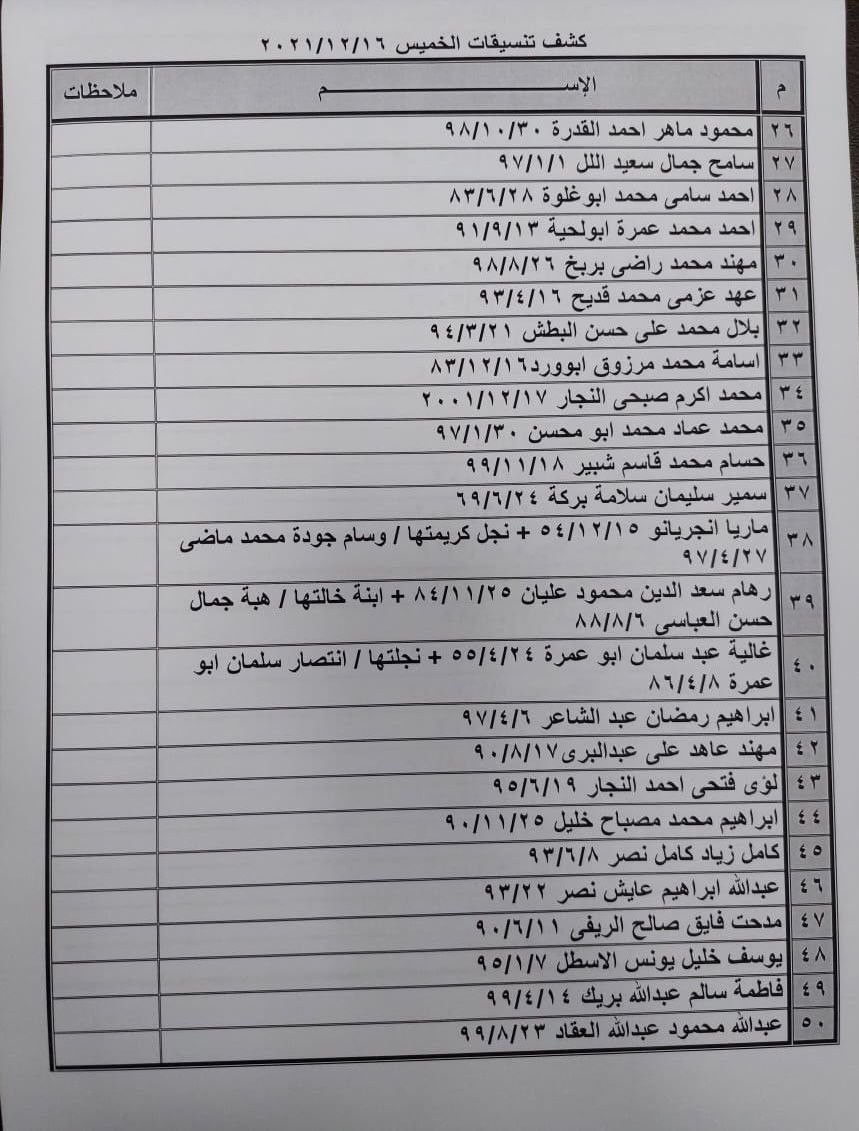 كشف تنسيقات الخميس ٢٠٢١/١٢/١٦
م الإســـــــــــــــــم ملاحظات
٢٦ محمود ماهر احمد القدرة ٩٨/١٠/٣٠
٢٧ سامح جمال سعيد اللل ٩٧/١/١
٢٨ احمد سامى محمد ابوغلوة ٨٣/٦/٢٨
٢٩ احمد محمد عمرة ابولحية ٩١/٩/١٣
٣٠ مهند محمد راضى بربخ ٩٨/٨/٢٦
٣١ عهد عزمى محمد قديح ٩٣/٤/١٦
٣٢ بلال محمد على حسن البطش ٩٤/٣/٢١
٣٣ اسامة محمد مرزوق ابوورد٨٣/١٢/١٦
٣٤ محمد اكرم صبحى النجار ٢٠٠١/١٢/١٧
٣٥ محمد عماد محمد ابو محسن ٩٧/١/٣٠
٣٦ حسام محمد قاسم شبير ٩٩/١١/١٨
٣٧ سمير سليمان سلامة بركة ٦٩/٦/٢٤
٣٨ ماريا انجريانو ٥٤/١٢/١٥ + نجل كريمتها / وسام جودة محمد ماضى
٩٧/٤/٢٧
٣٩ رهام سعد الدين محمود عليان ٨٤/١١/٢٥ + ابنة خالتها / هبة جمال
حسن العباسى ٨٨/٨/٦
٤٠ غالية عبد سلمان ابو عمرة ٥٥/٤/٢٤ + نجلتها / انتصار سلمان ابو
عمرة ٨٦/٤/٨
٤١ ابراهيم رمضان عبد الشاعر ٩٧/٤/٦
٤٢ مهند عاهد على عبدالبرى٩٠/٨/١٧
٤٣ لؤى فتحى احمد النجار ٩٥/٦/١٩
٤٤ ابراهيم محمد مصباح خليل ٩٠/١١/٢٥
٤٥ كامل زياد كامل نصر ٩٣/٦/٨
٤٦ عبدالله ابراهيم عايش نصر ٩٣/٢٢
٤٧ مدحت فايق صالح الريفى ٩٠/٦/١١
٤٨ يوسف خليل يونس الاسطل ٩٥/١/٧
٤٩ فاطمة سالم عبدالله بريك ٩٩/٤/١٤
٥٠ عبدالله محمود عبدالله العقاد ٩٩/٨/٢٣